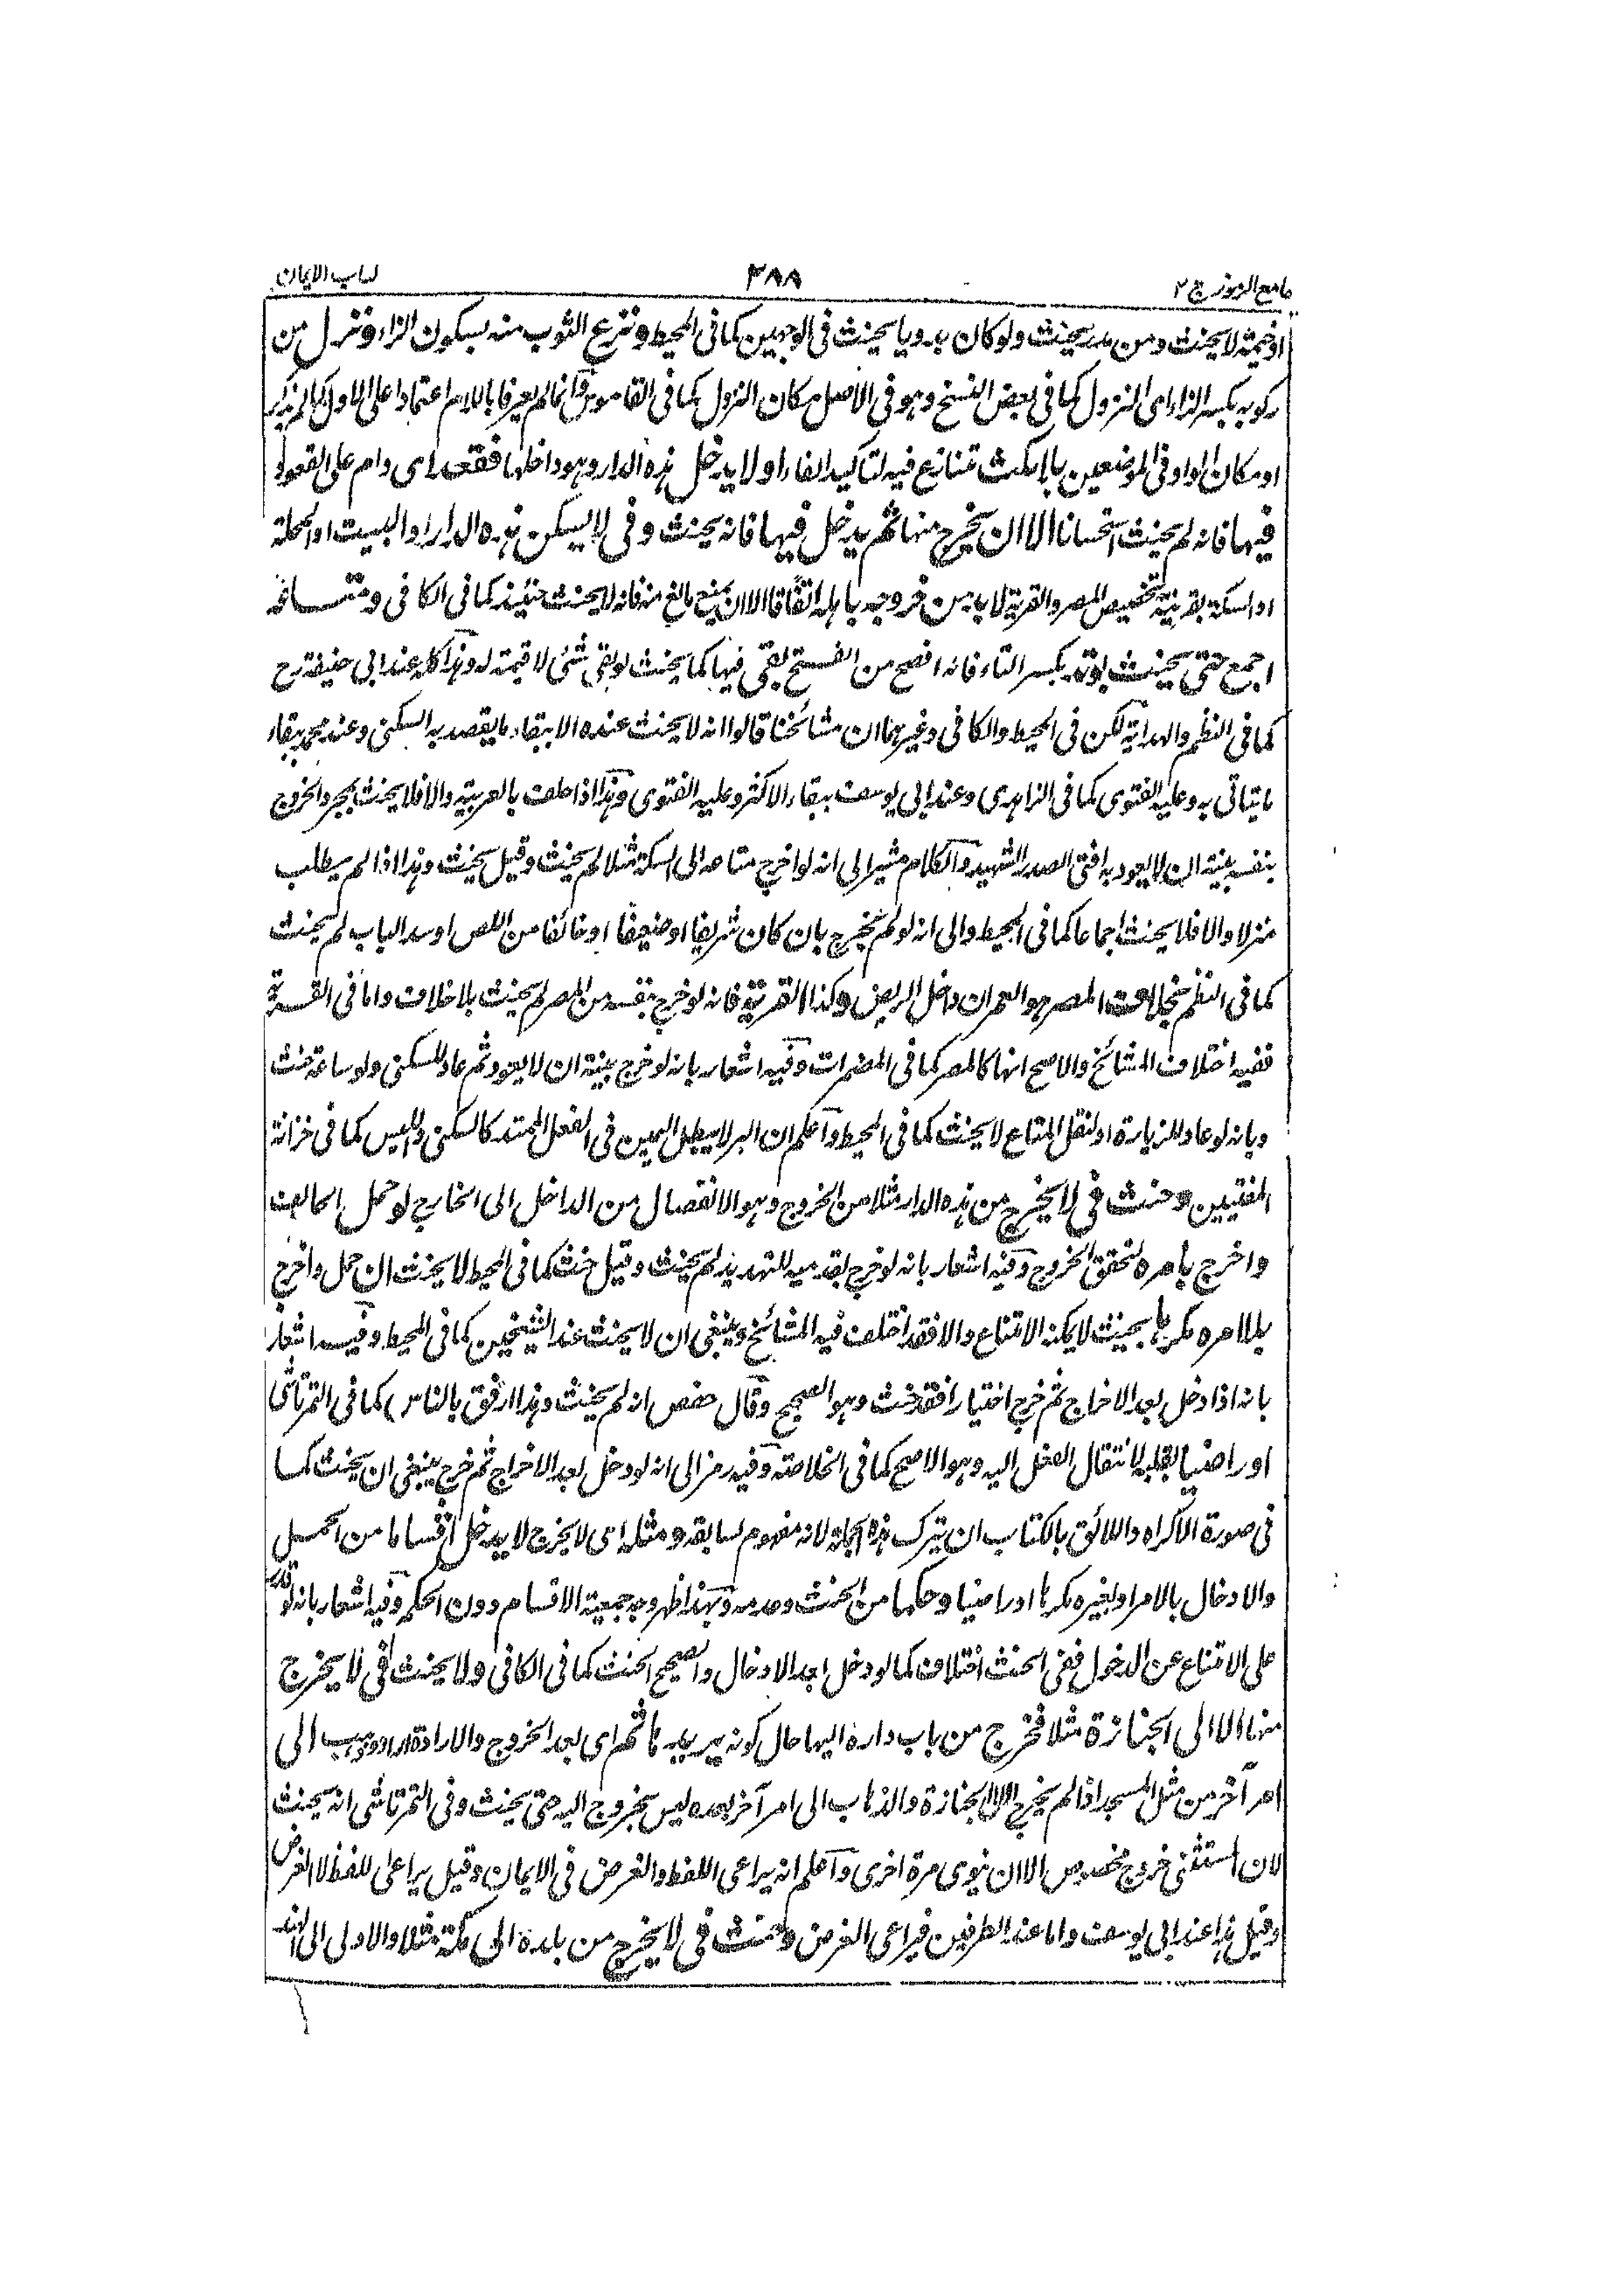 جامع الرموز ج ٢
٣٨٨
كتاب الايمان
او خيمة لا يحنث ومن مدر يحنث ولو كان بدويا يحنث فى الوجهين كما فى المحيط ونزع الثوب منه بسكون الزاء ونزل من
ركوبه بكسر الزاء اى النزول كما فى بعض النسخ وهو فى الاصل مكان النزول كما فى القاموس وانما لم يعرفا باللام اعتمادا على الاول كما لم يذكر
او مكان الواو فى الموضعين بلا مكث تنازع فيه لتاكيد الفاء او لا يدخل هذه الدار وهو داخلها فقعد اى دام على القعود
فيها فانه لم يحنث استحسانا الا ان يخرج منها ثم يدخل فيها فانه يحنث وفى لا يسكن هذه الدار او البيت او المحلة
او السكة بقرينة تخصيص المصر والقرية لا بد من خروجه باهله اتفاقا الا ان يمنع مانع منه فانه لا يحنث حينئذ كما فى الكافى ومتاعه
اجمع حتى يحنث بوتد بكسر التاء فانه افصح من الفتح بقى فيها كما يحنث لو بقى شئ لا قيمة له وهذا كله عند ابى حنيفة رح
كما فى النظم والهداية لكن فى المحيط والكافى وغيرهما ان مشائخنا قالوا انه لا يحنث عنده الا ببقاء ما يقصد به السكنى وعند محمد ببقاء
ما يتاتى به وعليه الفتوى كما فى الزاهدى وعند ابى يوسف ببقاء الاكثر وعليه الفتوى وهذا اذا حلف بالعربية والا فلا يحنث بمجرد الخروج
بنفسه بنية ان لا يعود به افتى الصدر الشهيد والكلام مشير الى انه لو اخرج متاعه الى السكة مثلا لم يحنث وقيل يحنث وهذا اذا لم يطلب
منزلا والا فلا يحنث اجماعا كما فى المحيط والى انه لو لم يخرج بان كان شريفا او ضعيفا او خائفا من اللص او سد الباب لم يحنث
كما فى النظم بخلاف المصر هو العمران داخل الربض وكذا القرية فانه لو خرج بنفسه من المصر لم يحنث بلا خلاف واما فى القرية
ففيه اختلاف المشائخ والاصح انها كالمصر كما فى المضمرات وفيه اشعار بانه لو خرج بنية ان لا يعود ثم عاد للسكنى ولو ساعة حنث
وبانه لو عاد للزيارة او لنقل المتاع لا يحنث كما فى المحيط واعلم ان البر لا يبطل اليمين فى الفعل الممتد كالسكنى واللبس كما فى خزانة
المفتيين وحنث فى لا يخرج من هذه الدار مثلا من الخروج وهو الانفصال من الداخل الى الخارج لو حمل الحالف
واخرج بامره لتحقق الخروج وفيه اشعار بانه لو خرج بقدميه للتهديد لم يحنث وقيل حنث كما فى المحيط لا يحنث ان حمل واخرج
بلا امره مكرها بحيث لا يمكنه الامتناع والا فقد اختلف فيه المشائخ وينبغى ان لا يحنث عند الشيخين كما فى المحيط وفيه اشعار
بانه اذا دخل بعد الاخراج ثم خرج اختيارا فقد حنث وهو الصحيح وقال حفص انه لم يحنث وهذا ارفق بالناس كما فى التمرتاشى
او راضيا بقلبه لانتقال الفعل اليه وهو الاصح كما فى الخلاصة وفيه رمز الى انه لو دخل بعد الاخراج ثم خرج ينبغى ان يحنث كما
فى صورة الاكراه واللائق بالكتاب ان يترك هذه الجملة لانه مفهوم لسابقه ومثله اى لا يخرج لا يدخل اقساما من الحمل
والادخال بالامر او بغيره مكرها او راضيا وحكما من الحنث وعدمه وبهذا ظهر وجه جمعية الاقسام دون الحكم وفيه اشعار بانه لو قدر
على الامتناع عن الدخول ففى الحنث اختلاف كما لو دخل بعد الادخال والصحيح الحنث كما فى الكافى ولا يحنث فى لا يخرج
منها الا الى الجنازة مثلا فخرج من باب داره اليها حال كونه يريدها ثم اى بعد الخروج والارادة اراد وذهب الى
امر آخر من مثل المسجد اذ لم يخرج الا الى الجنازة والذهاب الى امر آخر بعده ليس بخروج اليه حتى يحنث وفى التمرتاشى انه يحنث
لان استثنى خروج مخصوص الا ان نوى مرة اخرى واعلم انه يراعى اللفظ والغرض فى الايمان وقيل يراعى للفظ لا الغرض
وقيل هذا عند ابى يوسف واما عند الطرفين فيراعى الغرض وحنث فى لا يخرج من بلده الى مكة مثلا والاولى الى الهند